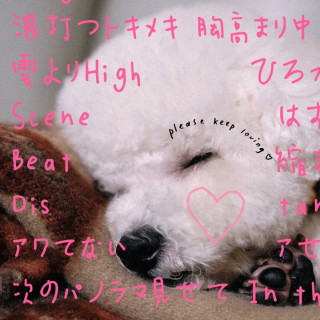 波打つトキメキ 胸高まり中
雲よりHigh ひろ
please keep loving♡
Scene はす
Beat 縮ま
Dis tan
アワてない アせ
次のパノラマ見せて In th